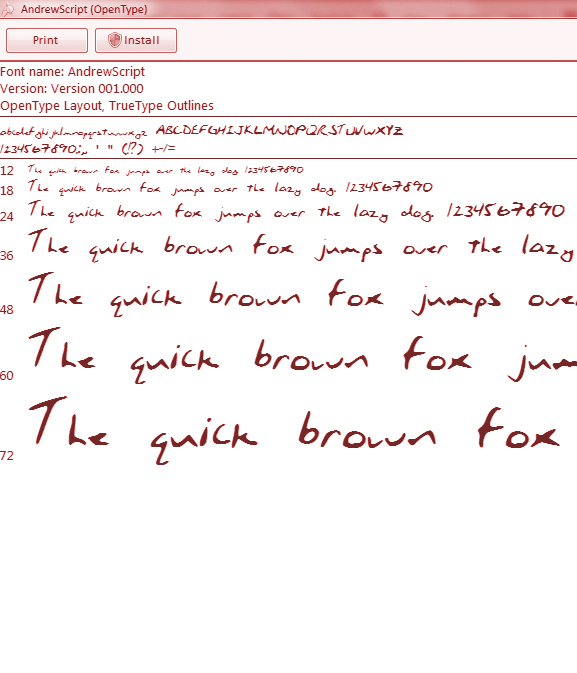 AndrewScript (OpenType)
Print Install
Font name: AndrewScript
Version: Version 001.000
OpenType Layout, TrueType Outlines
abcdefghijklmnopqrstuvwxyz ABCDEFGHIJKLMNOPQRSTUVWXYZ
1234567890.:,; ' " (!?) +-/=
12 The quick brown fox jumps over the lazy dog. 1234567890
18 The quick brown fox jumps over the lazy dog. 1234567890
24 The quick brown fox jumps over the lazy dog. 1234567890
36 The quick brown fox jumps over the lazy
48 The quick brown fox jumps over
60 The quick brown fox jum
72 The quick brown fox